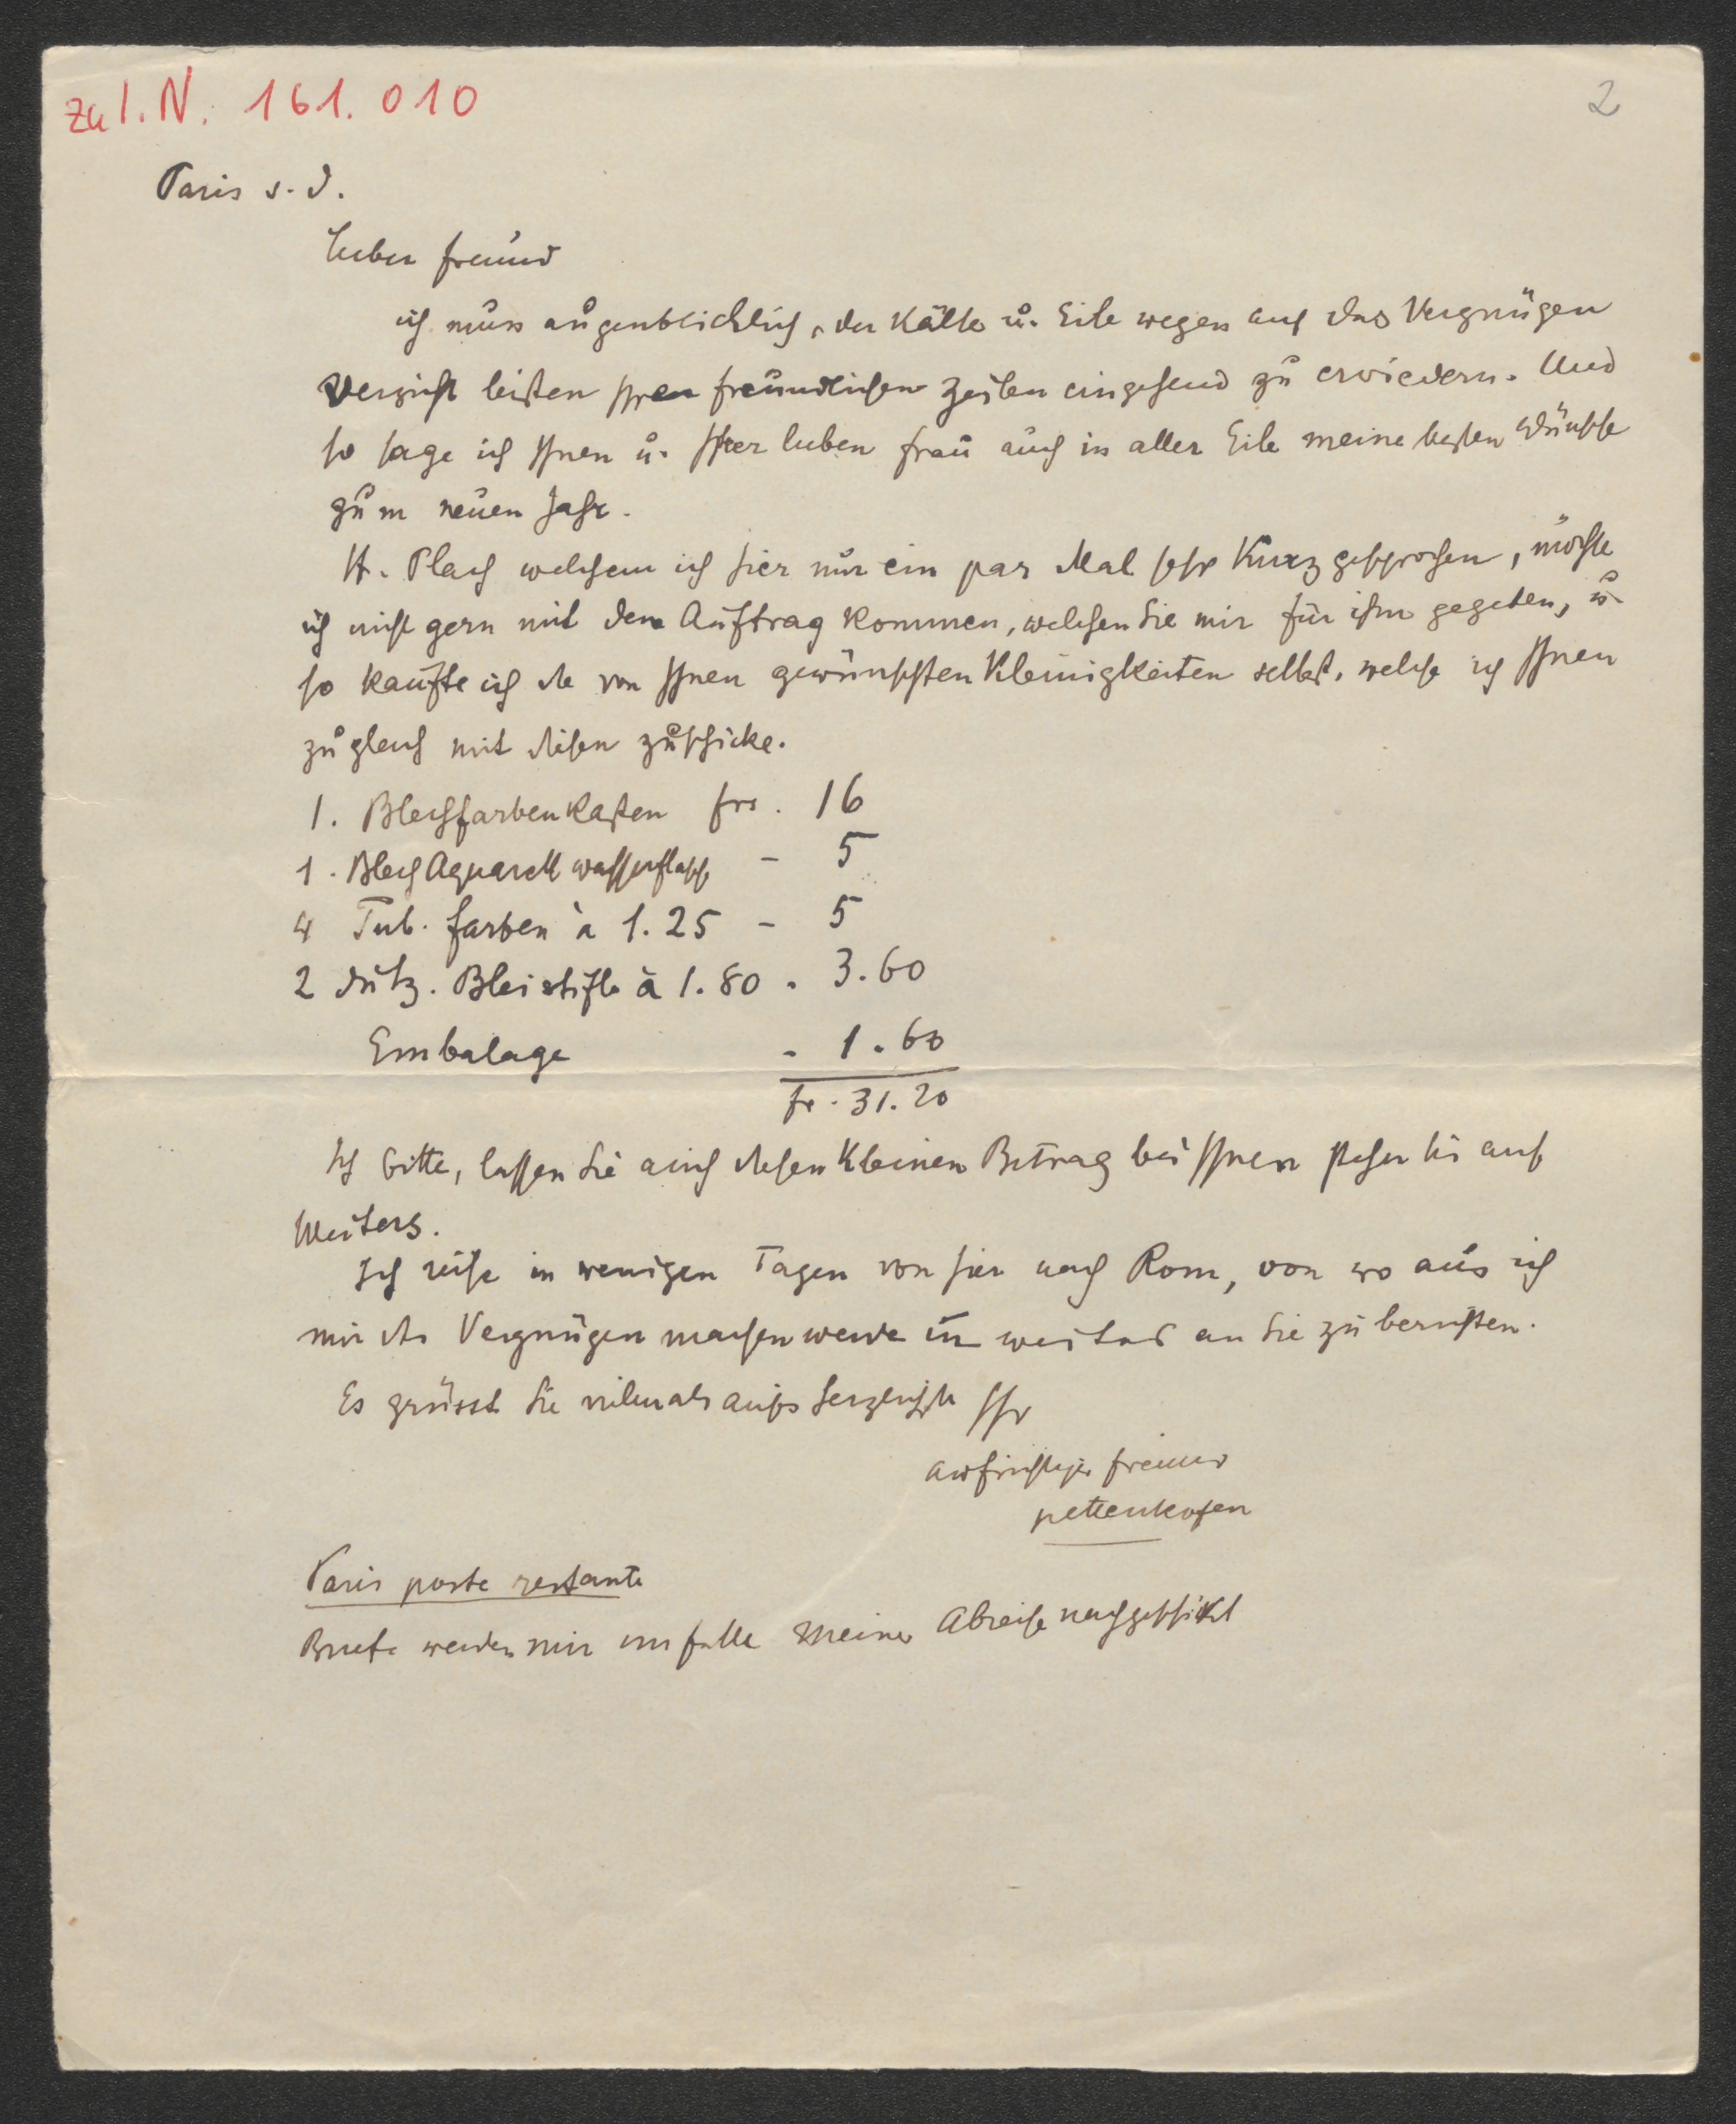 zu I. N. 161.010
2
Paris s. d.
Lieber Freund
ich muss augenblicklich, der Kälte u. Eile wegen auf das Vergnügen
Verzicht leisten Ihren freundlichen Zeilen eingehend zu erwiedern. Und
so sage ich Ihnen u. Ihrer lieben Frau auch in aller Eile meine besten Wünsche
zum neuen Jahr.
H. Plach welchem ich hier nur ein par Mal sehr Kurz gesprochen, möchte
ich nicht gern mit dem Auftrag kommen, welchen Sie mir für ihn gegeben, u.
so kaufte ich die von Ihnen gewünschten Kleinigkeiten selbst, welche ich Ihnen
zugleich mit diesen zuschicke.
1. Blechfarbenkasten frs. 16
1. Blech Aquarell wasserflasche - 5
4 Tub. Farben à 1.25 - 5
2 dutz. Bleistifte à 1.80 - 3.60
Embalage - 1.60
fr. 31.20
Ich bitte, lassen Sie auch diesen Kleinen Betrag bei Ihnen stehen bis auf
Weiters.
Ich reise in wenigen Tagen von hier nach Rom, von wo aus ich
mir das Vergnügen machen werde weiters an Sie zu berichten.
Es grüsst Sie vilmals aufs herzlichste Ihr
aufrichtiger Freund
pettenkofen
Paris poste restante
Briefe werden mir im falle meiner Abreise nachgeschickt